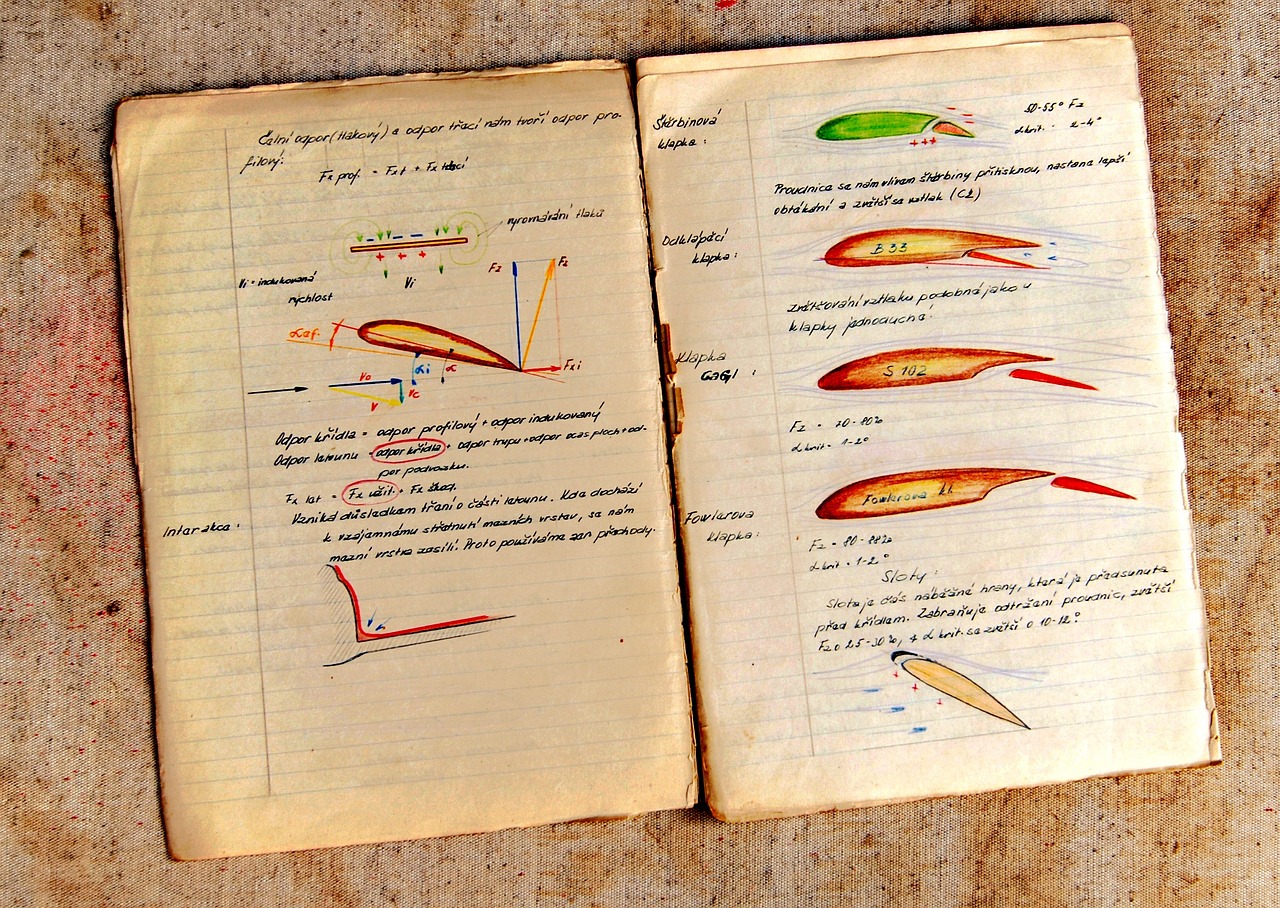 Čelní odpor (tlakový) a odpor třecí nám tvoří odpor pro-
filový:
Fx prof. = Fxt + Fx třecí
vyrovnávání tlaků
Vi = indukovaná
rychlost
Vi
Fz
Fz
αef.
αi
α
Fxi
Vo
Vc
V
Odpor křídla = odpor profilový + odpor indukovaný
Odpor letounu = odpor křídla + odpor trupu + odpor ocas ploch + od-
por podvozku.
Fx let = Fx užit. + Fx škod.
Interakce:
Vzniká důsledkem tření o části letounu. Kde dochází
k vzájemnému střetnutí mezních vrstev, se nám
mezní vrstva zesílí. Proto používáme zan přechody.
Štěrbinová
klapka:
50-55° Fz
αkrit. - 2-4°
Proudnice se nám vlivem štěrbiny přitisknou, nastane lepší
obtékání a zvětší se vztlak (Cz)
Odklápěcí
klapka:
B 33
zvětšování vztlaku podobná jako u
klapky jednoduché.
Klapka
GaGl:
S 102
Fz - 70-80%
αkrit - 1-2°
Fowlerova
klapka:
Fowlerova kl.
Fz - 80-88%
αkrit - 1-2°
Sloty:
Slota je část náběžné hrany, která je předsunuta
před křídlem. Zabraňuje odtržení proudnic, zvětší
Fz o 25-30%, α krit. se zvětší o 10-12°